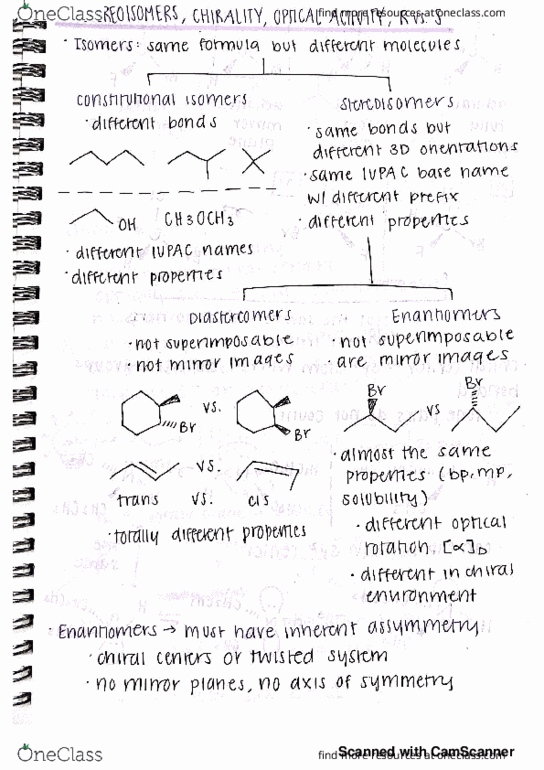 OneClass
find more resources at oneclass.com
REOISOMERS, CHIRALITY, OPTICAL ACTIVITY, R vs. S
· Isomers: same formula but different molecules
constitutional isomers
· different bonds
OH CH3OCH3
· different IUPAC names
· different properties
stereoisomers
· same bonds but
different 3D orientations
· same IUPAC base name
w/ different prefix
· different properties
Diastereomers
· not superimposable
· not mirror images
vs.
Br
Br
vs.
trans vs. cis
· totally different properties
Enantiomers
· not superimposable
· are mirror images
Br
vs
Br
· almost the same
properties (bp, mp,
solubility)
· different optical
rotation, [α]D
· different in chiral
environment
· Enantiomers → must have inherent assymmetry
· chiral centers or twisted system
· no mirror planes, no axis of symmetry
OneClass
find more resources at oneclass.com
Scanned with CamScanner